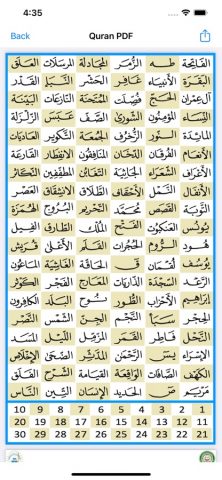 4:35
Back Quran PDF
العلق المرسلات المجادلة الزمر طه الفاتحة
القدر النبأ الحشر غافر الأنبياء البقرة
البينة النازعات الممتحنة فصلت الحج آل عمران
الزلزلة عبس الصف الشورى المؤمنون النساء
العاديات التكوير الجمعة الزخرف النور المائدة
القارعة الانفطار المنافقون الدخان الفرقان الأنعام
التكاثر المطففين التغابن الجاثية الشعراء الأعراف
العصر الانشقاق الطلاق الأحقاف النمل الأنفال
الهمزة البروج التحريم محمد القصص التوبة
الفيل الطارق الملك الفتح العنكبوت يونس
قريش الأعلى القلم الحجرات الروم هود
الماعون الغاشية الحاقة ق لقمان يوسف
الكوثر الفجر المعارج الذاريات السجدة الرعد
الكافرون البلد نوح الطور الأحزاب إبراهيم
النصر الشمس الجن النجم سبأ الحجر
المسد الليل المزمل القمر فاطر النحل
الإخلاص الضحى المدثر الرحمن يس الإسراء
الفلق الشرح القيامة الواقعة الصافات الكهف
الناس التين الإنسان الحديد ص مريم
10 9 8 7 6 5 4 3 2 1
20 19 18 17 16 15 14 13 12 11
30 29 28 27 26 25 24 23 22 21